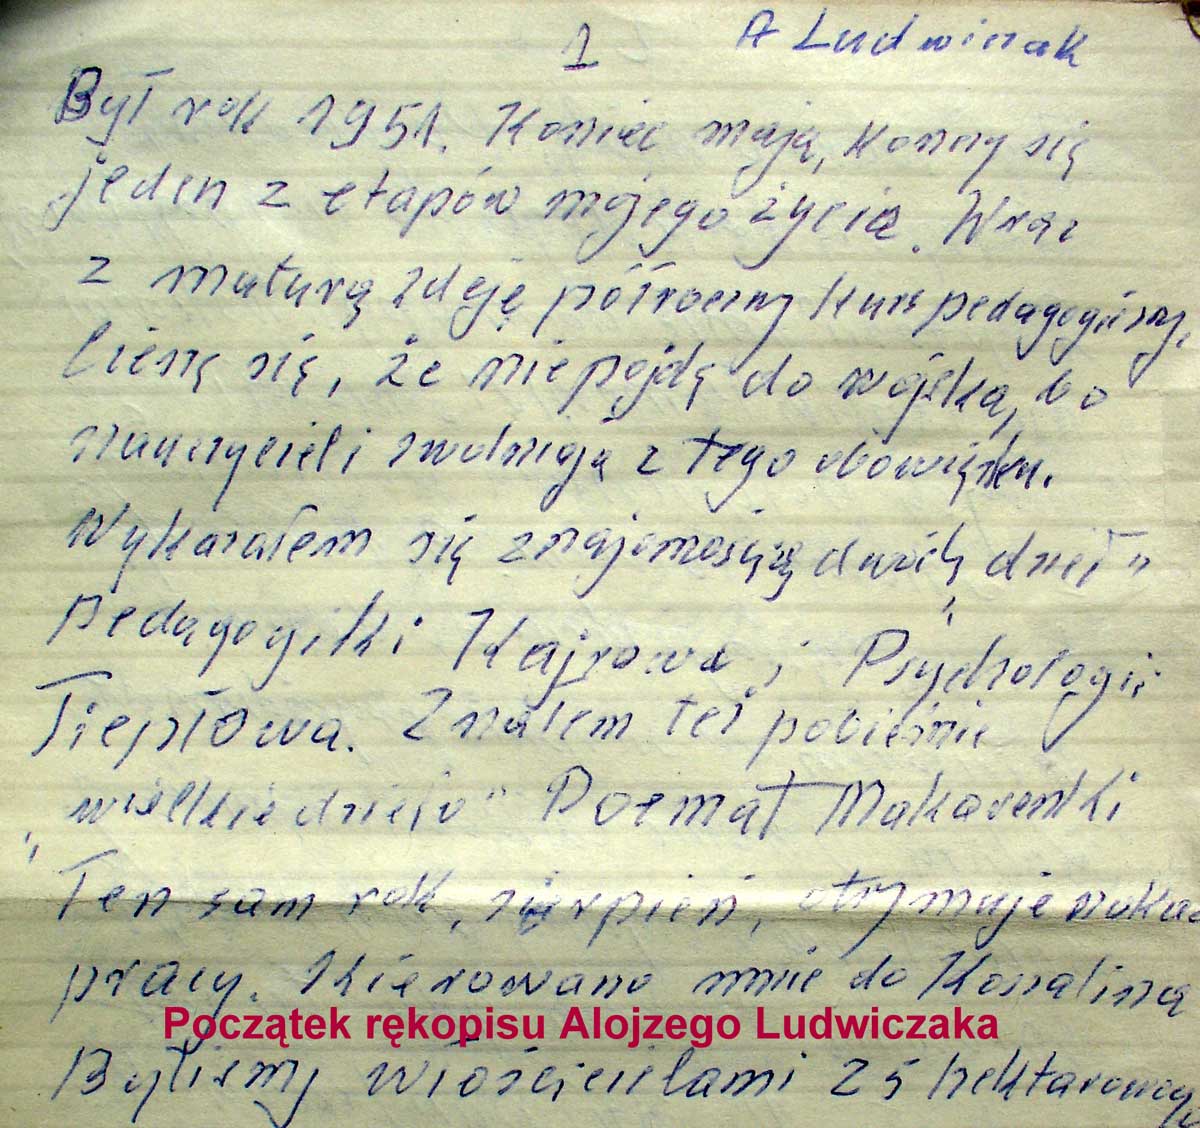 1
A Ludwiczak
Był rok 1951. Koniec maja, kończy się
jeden z etapów mojego życia. Wraz
z maturą zdaję półroczny kurs pedagogiczny,
Cieszę się, że nie pójdę do wojska, bo
nauczycieli zwalniają z tego obowiązku.
Wykazałem się znajomością dwóch „dzieł"
pedagogiki Kajrowa i Psychologii
Tiepłowa. Znałem też pobieżnie
„wielkie dzieło" Poemat Makarenki
Ten sam rok, sierpień, otrzymuje nakaz
pracy. Skierowano mnie do Koszalina
Początek rękopisu Alojzego Ludwiczaka
Byliśmy właścicielami 25 hektarowego